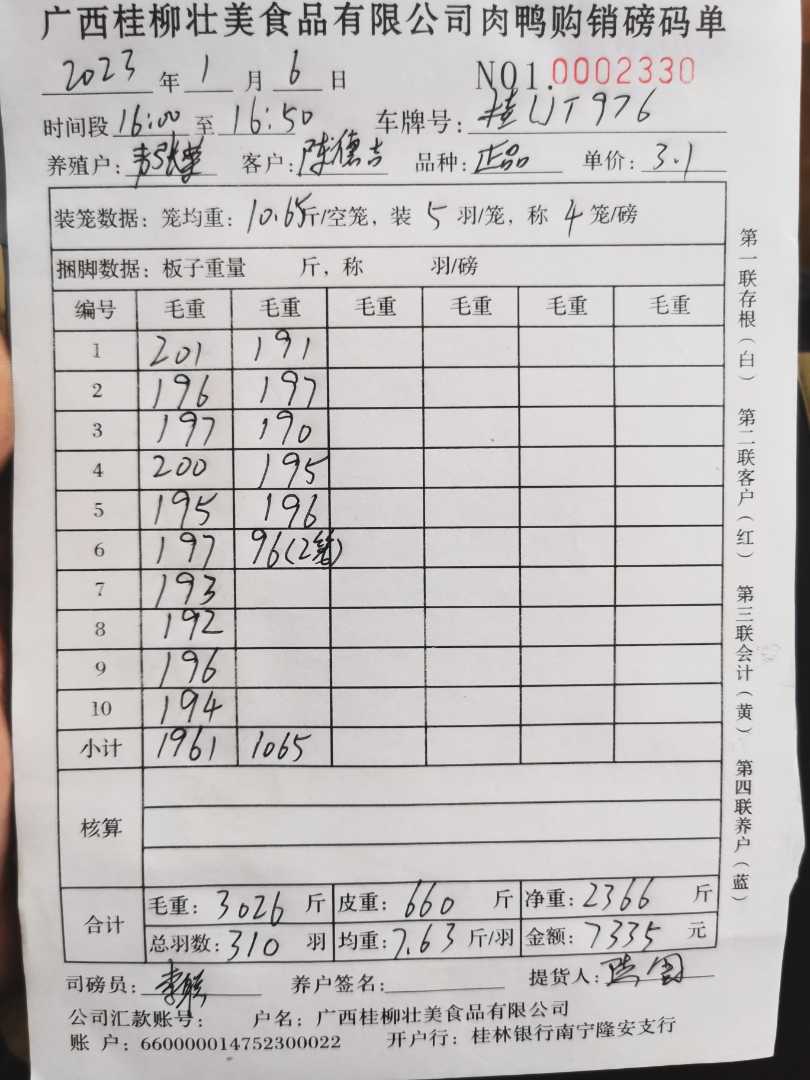 广西桂柳壮美食品有限公司肉鸭购销磅码单
2023年1月6日 NO1.0002330
时间段16:00至16:50 车牌号:桂LJT976
养殖户: 客户:陈德吉 品种:正品 单价:3.1
装笼数据:笼均重:10.65斤/空笼,装5羽/笼,称4笼/磅
捆脚数据:板子重量 斤,称 羽/磅
编号 毛重 毛重 毛重 毛重 毛重 毛重
1 201 191
2 196 197
3 197 190
4 200 195
5 195 196
6 197 96(2笼)
7 193
8 192
9 196
10 194
小计 1961 1065
核算
合计 毛重:3026斤 皮重:660斤 净重:2366斤
总羽数:310羽 均重:7.63斤/羽 金额:7335元
司磅员: 养户签名: 提货人:
公司汇款账号: 户名:广西桂柳壮美食品有限公司
账 户:660000014752300022 开户行:桂林银行南宁隆安支行
第一联存根(白) 第二联客户(红) 第三联会计(黄) 第四联养户(蓝)